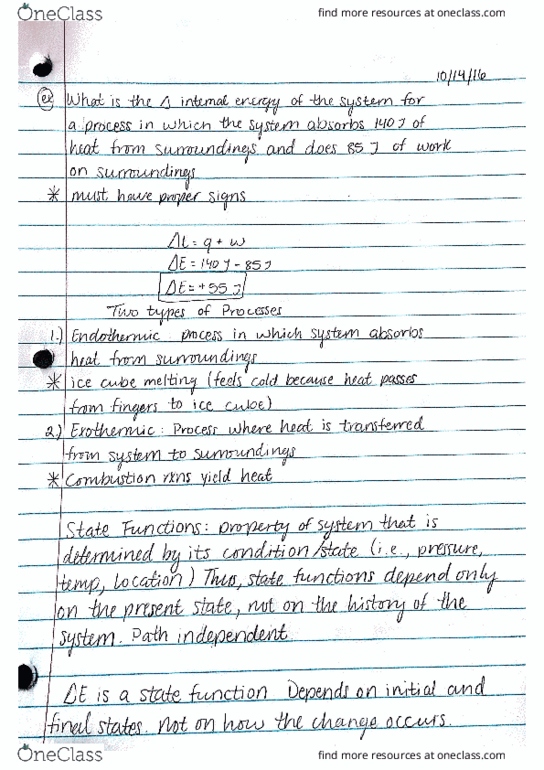 OneClass
find more resources at oneclass.com
10/14/16
ex What is the Δ internal energy of the system for
a process in which the system absorbs 140 J of
heat from surroundings and does 85 J of work
on surroundings
* must have proper signs
ΔE = q + w
ΔE = 140 J - 85 J
ΔE = +55 J
Two types of Processes
1.) Endothermic process in which system absorbs
heat from surroundings
* ice cube melting (feels cold because heat passes
from fingers to ice cube)
2) Exothermic: Process where heat is transferred
from system to surroundings
* Combustion rxns yield heat
State Functions: property of system that is
determined by its condition/state (i.e., pressure,
temp, location) Thus, state functions depend only
on the present state, not on the history of the
system. Path independent
ΔE is a state function Depends on initial and
final states. not on how the change occurs.
OneClass
find more resources at oneclass.com